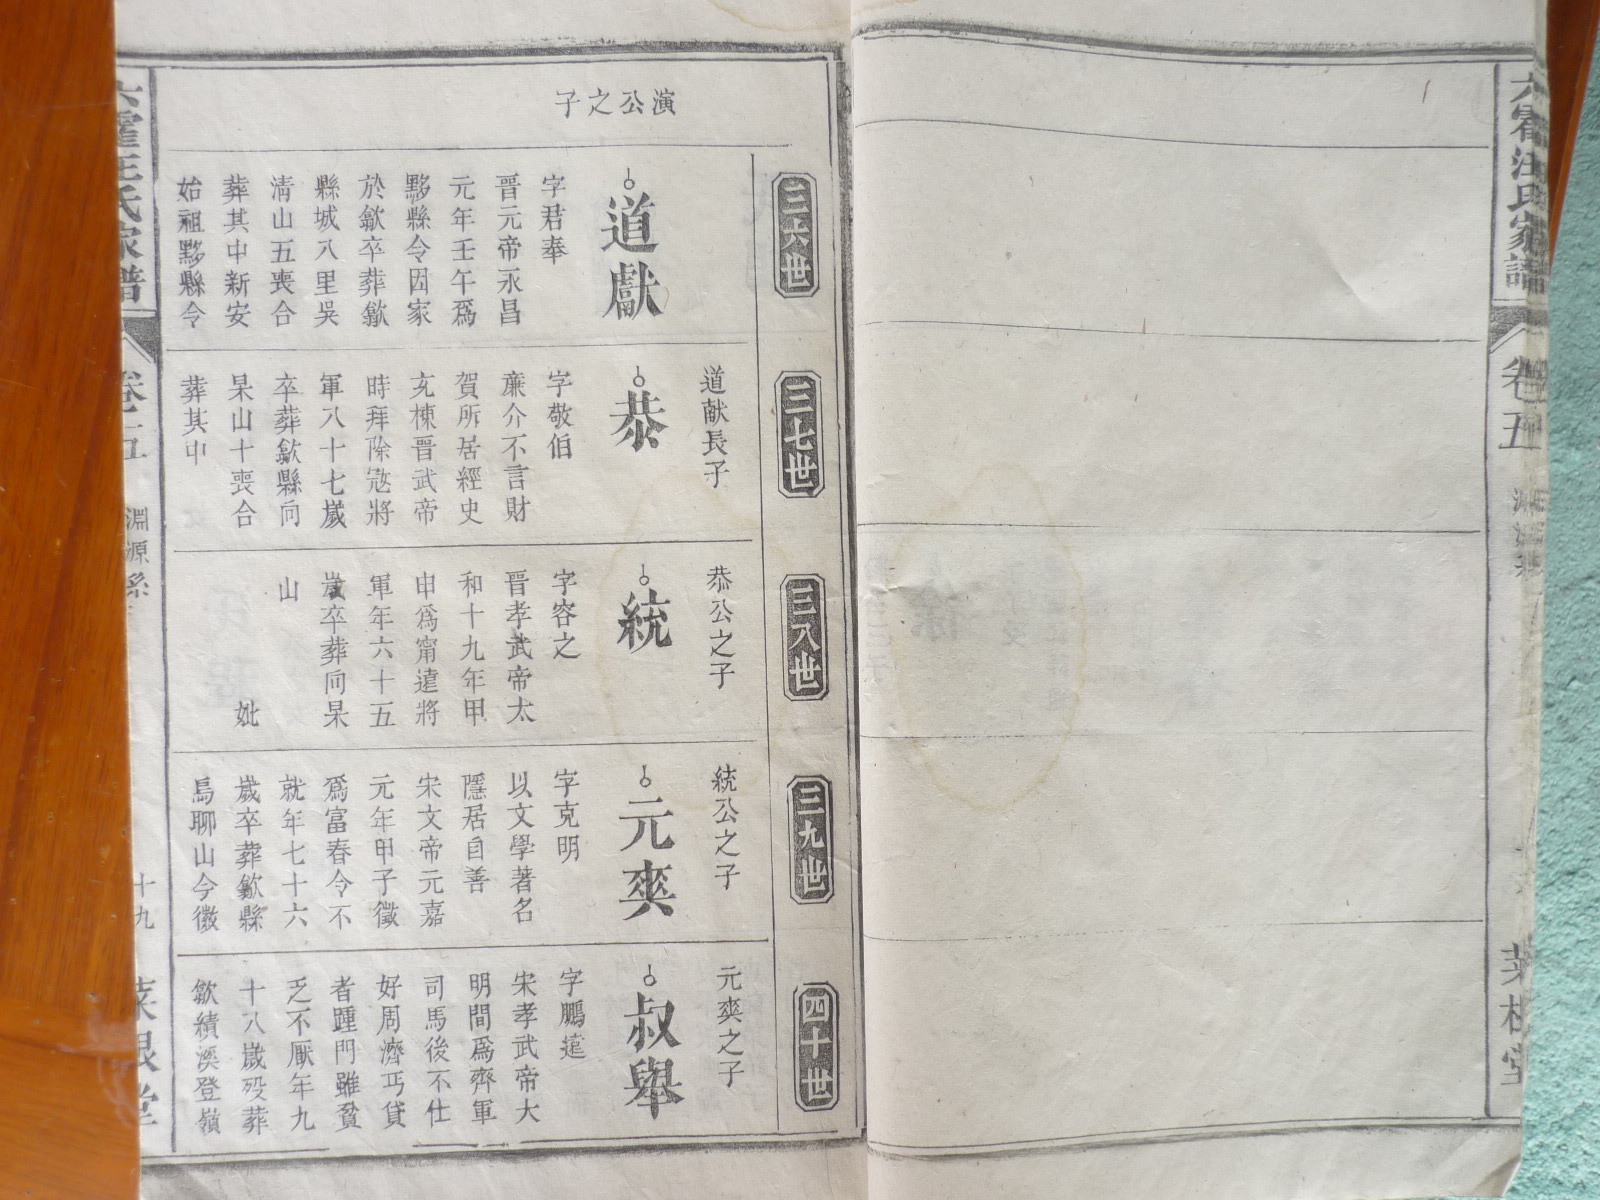 六霍汪氏家譜
卷五
菜根堂
演公之子
三六世
道獻
字君奉
晉元帝永昌
元年壬午爲
黟縣令因家
於歙卒葬歙
縣城八里吳
清山五喪合
葬其中新安
始祖黟縣令
三七世
道献長子
恭
字敬伯
廉介不言財
賀所居經史
充棟晋武帝
時拜除宼將
軍八十七嵗
卒葬歙縣向
杲山十喪合
葬其中
三八世
恭公之子
統
字容之
晉孝武帝太
和十九年甲
申爲甯遠將
軍年六十五
嵗卒葬向杲
山
妣
三九世
統公之子
元爽
字克明
以文學著名
隱居自善
宋文帝元嘉
元年甲子徵
爲富春令不
就年七十六
嵗卒葬歙縣
烏聊山今徽
四十世
元爽之子
叔舉
字鵬達
宋孝武帝大
明間爲齊軍
司馬後不仕
好周濟丐貸
者踵門雖貧
乏不厭年九
十八嵗歿葬
歙績溪登嶺
六霍汪氏家譜
卷五
淵源系
十九
菜根堂